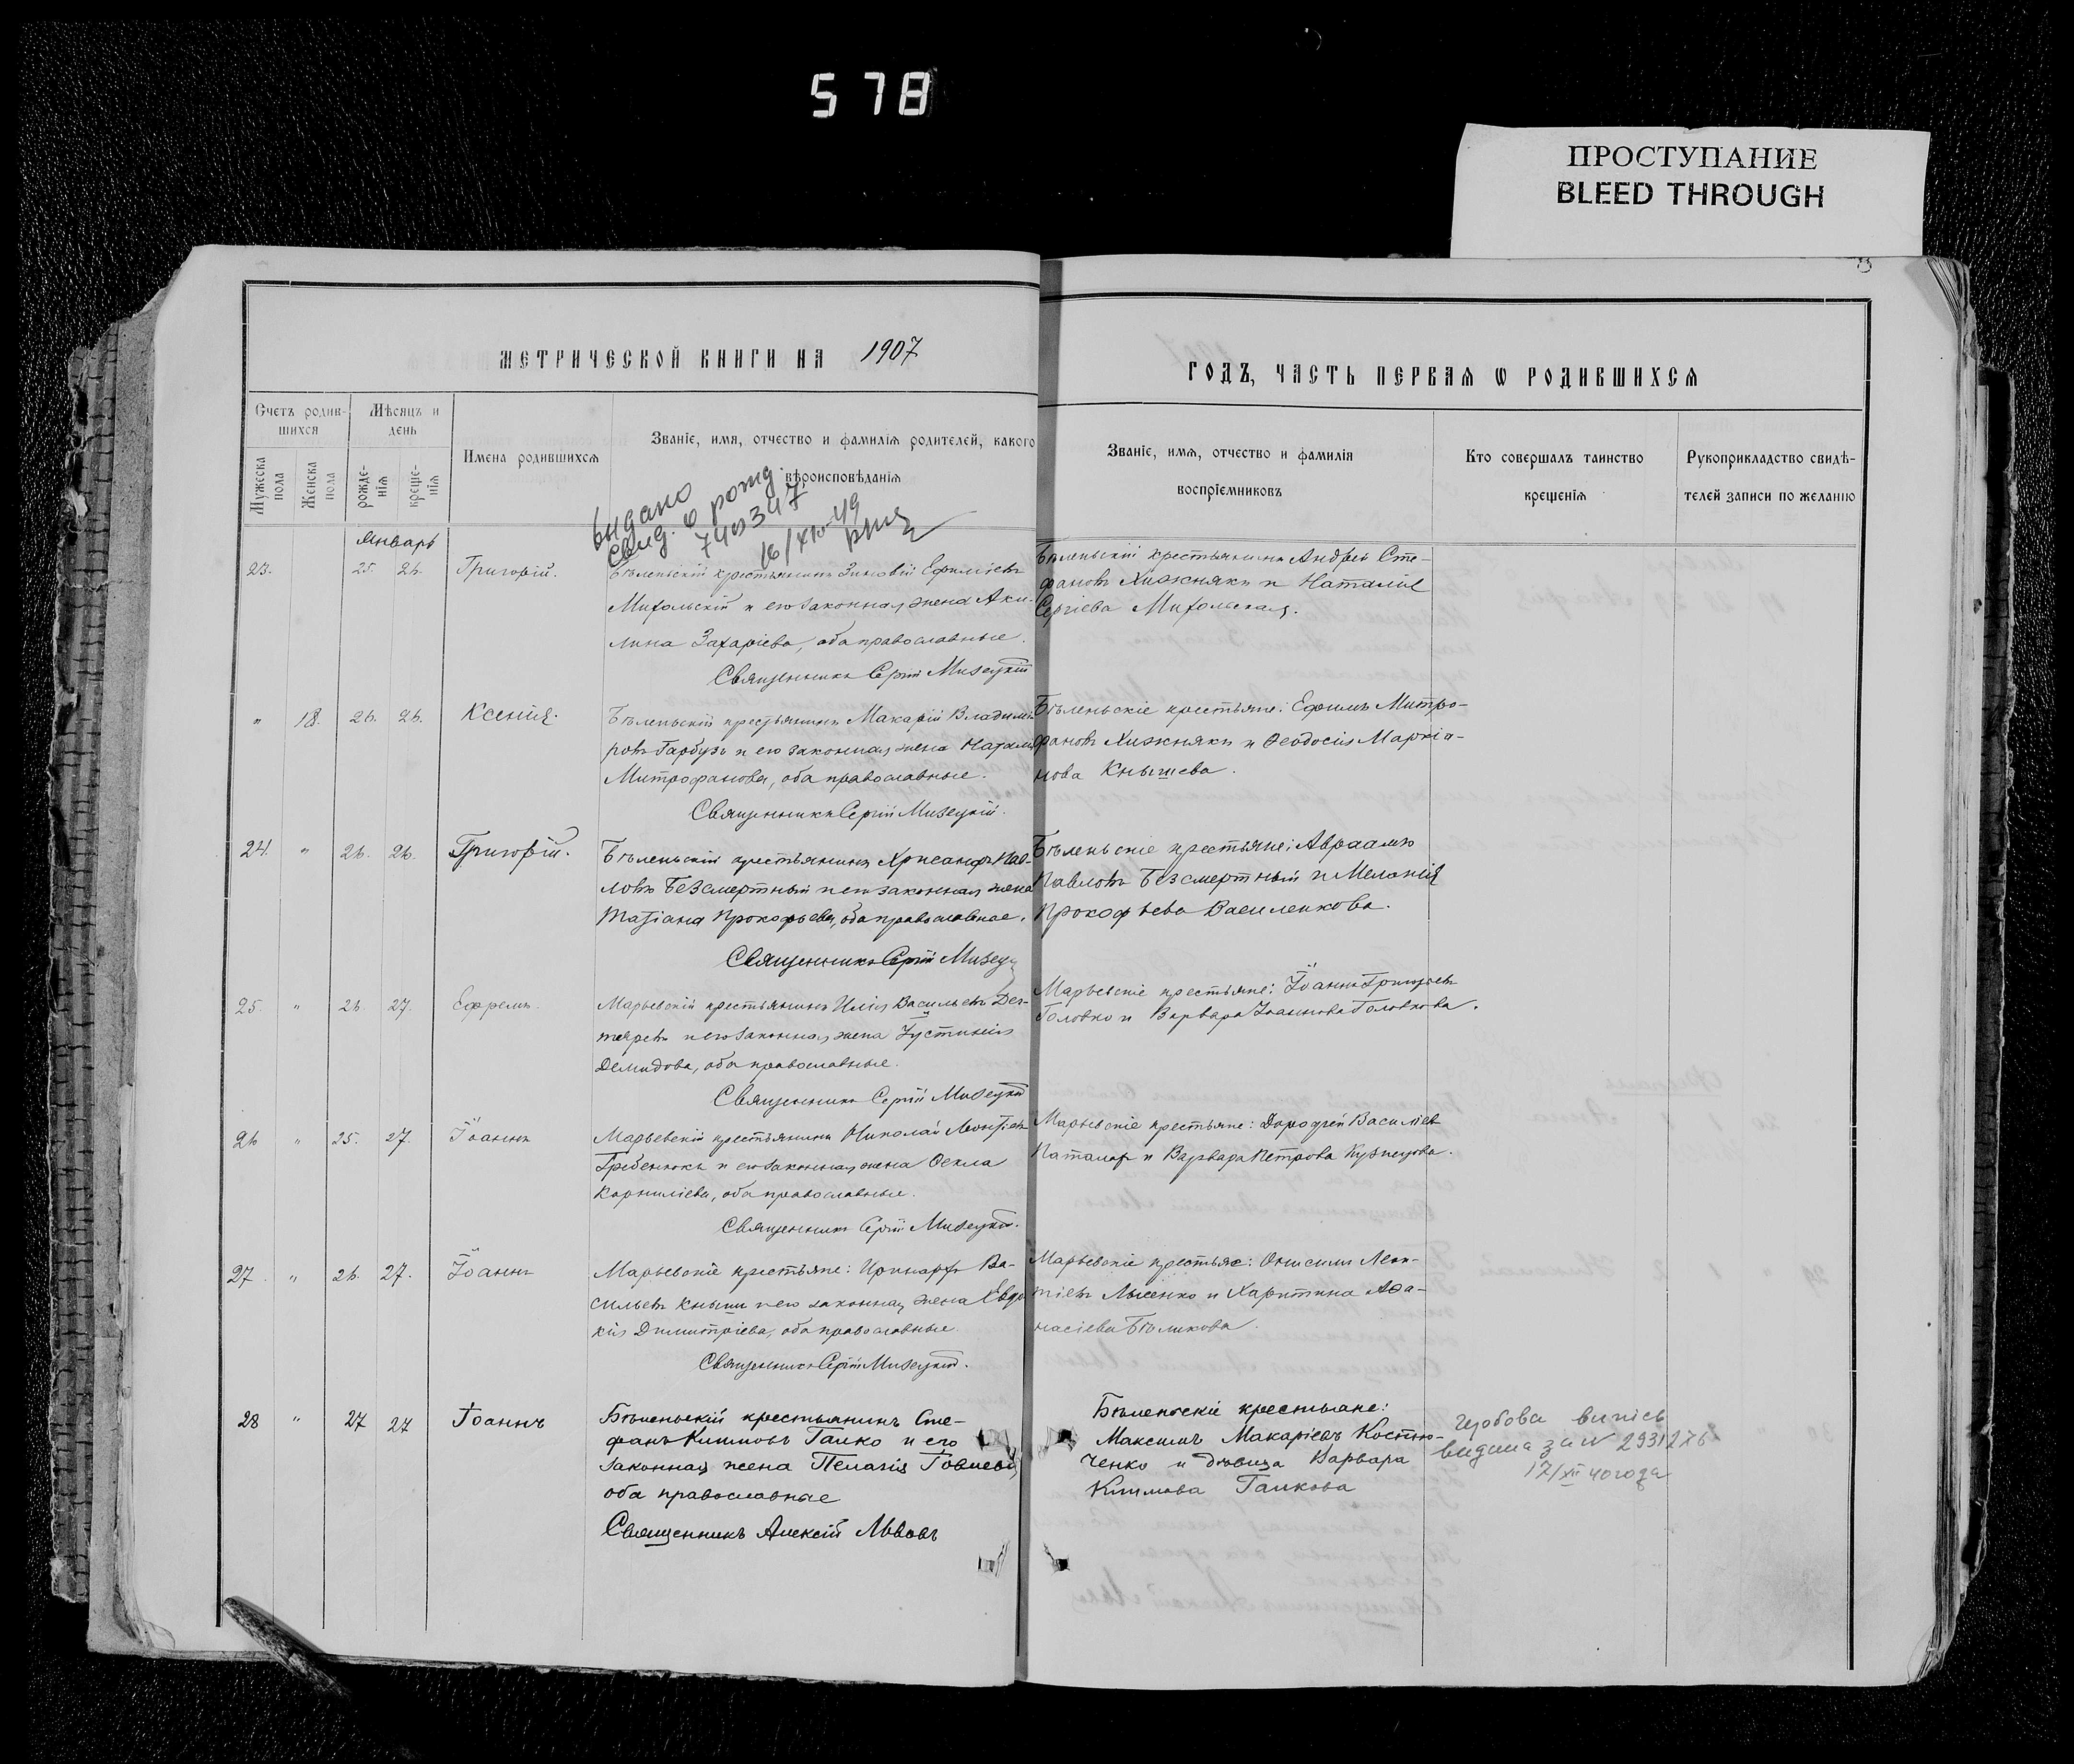 578
ПРОСТУПАНИЕ
BLEED THROUGH
МЕТРИЧЕСКОЙ КНИГИ НА 1907
ГОДЪ, ЧАСТЬ ПЕРВАЯ Ѡ РОДИВШИХСЯ
Счетъ родив-
шихся
Мѣсяцъ и
день
Мужеска
пола
Женска
пола
рожде-
нія
креще-
нія
Имена родившихся
Званіе, имя, отчество и фамилія родителей, какого
вѣроисповѣданія
Званіе, имя, отчество и фамилія
воспріемниковъ
Кто совершалъ таинство
крещенія
Рукоприкладство свидѣ-
телей записи по желанію
выдано
свид. о рожд.
740347
16/XII-49
Январь
23. 25. 26. Григорій.
Бѣленьскій крестьянинъ Зиновій Ефиміевъ
Михольскій и его законная жена Аки-
лина Захаріева, оба православные.
Священникъ Сергій Мизецкій
Бѣленьскій крестьянинъ Андрей Сте-
фановъ Хижнякъ и Наталія
Сергіева Михольская.
" 18. 26. 26. Ксенія.
Бѣленьскій крестьянинъ Макарій Владимі-
ровъ Гарбузъ и его законная жена Наталія
Митрофанова, оба православные.
Священникъ Сергій Мизецкій.
Бѣленьскіе крестьяне: Ефимъ Митро-
фановъ Хижнякъ и Ѳеодосія Маркіа-
нова Кнышева.
24. " 26. 26. Григорій.
Бѣленьскій крестьянинъ Хрисанфъ Пав-
ловъ Безсмертный и его законная жена
Татіана Прокофьева, оба православные.
Священникъ Сергій Мизец
Бѣленьскіе крестьяне: Авраамъ
Павловъ Безсмертный и Меланія
Прокофьева Василенкова.
25. " 26. 27. Ефремъ.
Марьевскій крестьянинъ Илія Васильевъ Дег-
теревъ и его законная жена Іустинія
Демидова, оба православные.
Священникъ Сергій Мизецкій
Марьевскіе крестьяне: Іоаннъ Григорьевъ
Головко и Варвара Іоаннова Головкова.
26 " 25. 27. Іоаннъ
Марьевскій крестьянинъ Николай Леонтіевъ
Гребенюкъ и его законная жена Ѳекла
Корниліева, оба православные.
Священникъ Сергій Мизецкій.
Марьевскіе крестьяне: Дороѳей Василіев
и Варвара Петрова Кузнецова.
27. " 26. 27. Іоаннъ
Марьевскіе крестьяне: Иринархъ Ва-
сильевъ Кнышъ и его законная жена Евдо
кія Димитріева, оба православные.
Священникъ Сергій Мизецкій.
Марьевскіе крестьяне: Онисимъ Леон-
тіевъ Лысенко и Харитина Аѳа-
насіева Бѣликова.
28 " 27 27 Іоаннъ
Бѣленьскій крестьянинъ Сте-
фанъ Климовъ Галко и его
законная жена Пелагія Іовлева
оба православные
Священникъ Алексій Львовъ
Бѣленьскіе крестьяне:
Максимъ Макаріевъ Костю-
ченко и дѣвица Варвара
Климова Галкова
випись
видана за № 2931276
17/XII 40 года